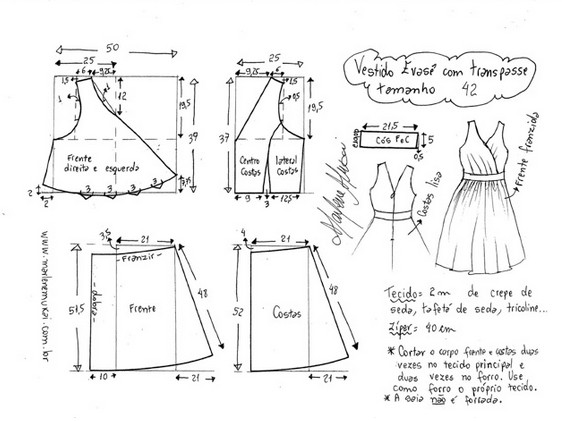 50
25
6 9,25
1,5
12
3
19,5
39
Frente
direita e esquerda
3 3 3 3
2
2
25
9,25 6
1,5
0,5
19,5
37
Centro
Costas
lateral
Costas
9 3 12,5
Vestido Evasê com transpasse
tamanho 42
21,5
Cós FeC
5
0,5
Marlene Mukai
Costas lisa
Frente franzida
www.marlenemukai.com.br
3,5 21
-Franzir-
-dobra-
51,5
Frente
48
10 21
4 21
52
Costas
48
21
Tecido= 2m de crepe de
seda, tafetá de seda, tricoline...
Zíper= 40cm
* Cortar o corpo frente e costas duas
vezes no tecido principal e
duas vezes no forro. Use
como forro o próprio tecido.
* A saia não é forrada.